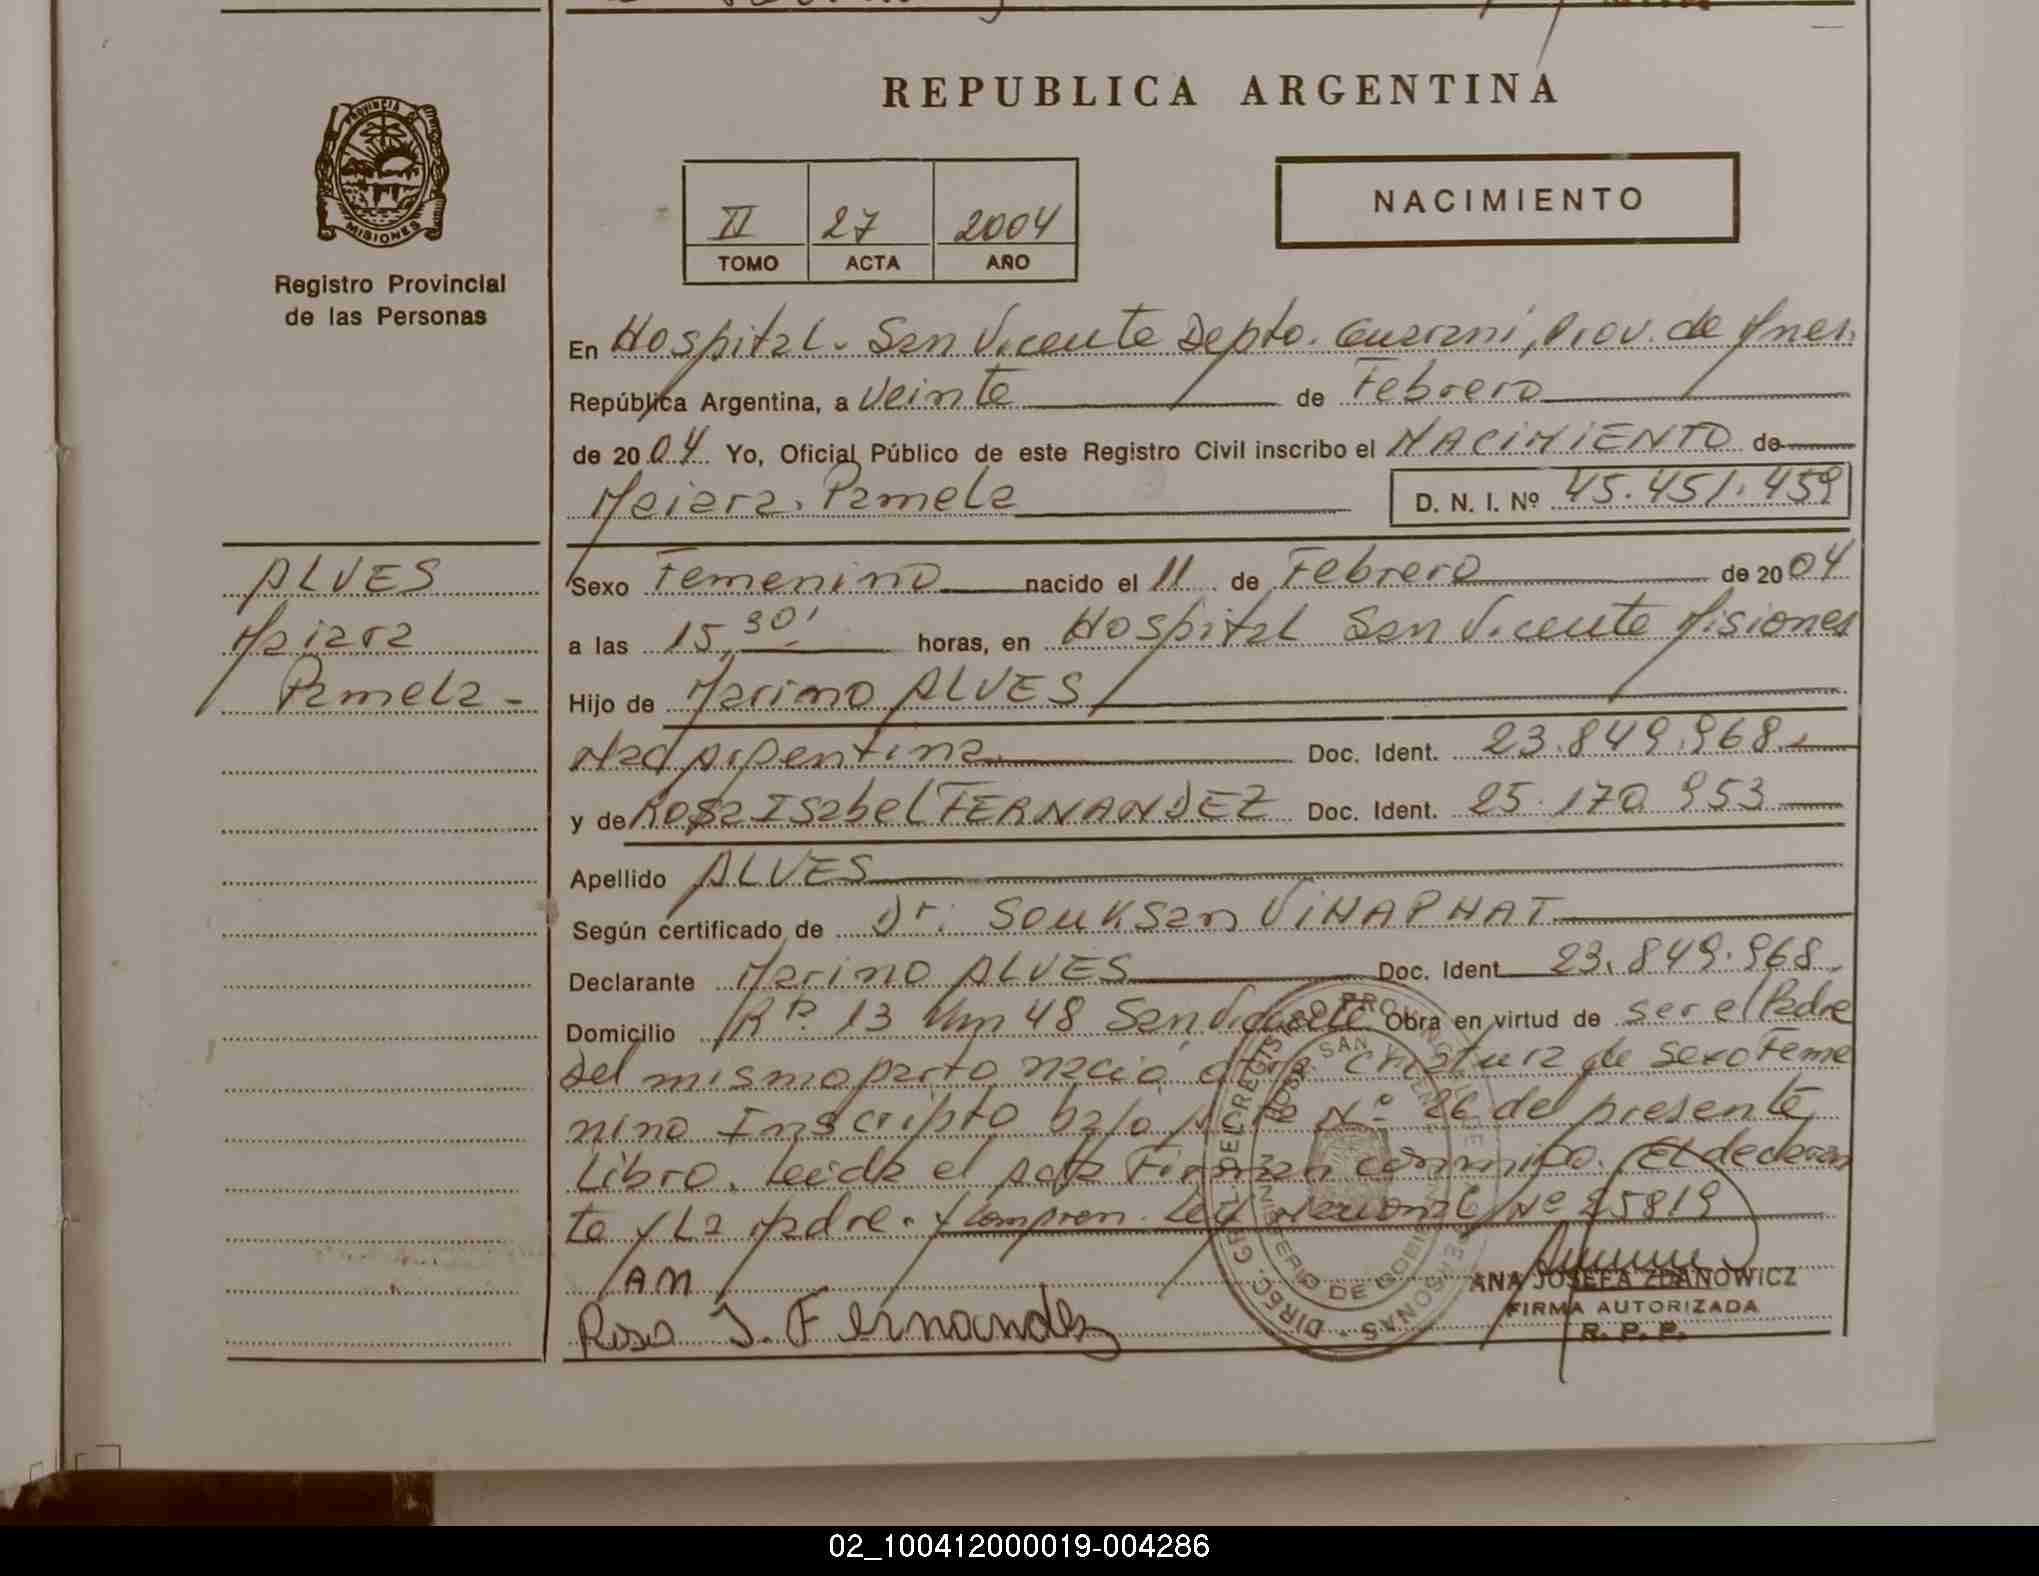 REPUBLICA ARGENTINA
PROVINCIA DE
MISIONES
Registro Provincial
de las Personas
II 27 2004
TOMO ACTA AÑO
NACIMIENTO
En Hospital - San Vicente Depto. Guarani, Prov. de Mnes.
República Argentina, a Veinte de Febrero
de 2004 Yo, Oficial Público de este Registro Civil inscribo el NACIMIENTO de
Maiara Pamela D. N. I. Nº 45.451.459
ALVES
Maiara
Pamela -
Sexo Femenino nacido el 11 de Febrero de 2004
a las 15,30' horas, en Hospital San Vicente Misiones
Hijo de Marino ALVES
Nac Argentina Doc. Ident. 23.849.968.-
y de Rosa Isabel FERNANDEZ Doc. Ident. 25.170.953
Apellido ALVES
Según certificado de Dr. Souksan VIHAPHAT
Declarante Marino ALVES Doc. Ident 23.849.968
Domicilio R.P. 13 Km 48 San Vicente Obra en virtud de ser el Padre
Del mismo parto nació otra Criatura de sexo Feme
nino Inscripto bajo Acta Nº 26 del presente
Libro. Leida el Acta Firman conmigo. El declaran
te y La Madre. Ley Nacional Nº 25819
AM
Rosa I. Fernandez
ANA JOSEFA ZDANOWICZ
FIRMA AUTORIZADA
R. P. P.
02_100412000019-004286